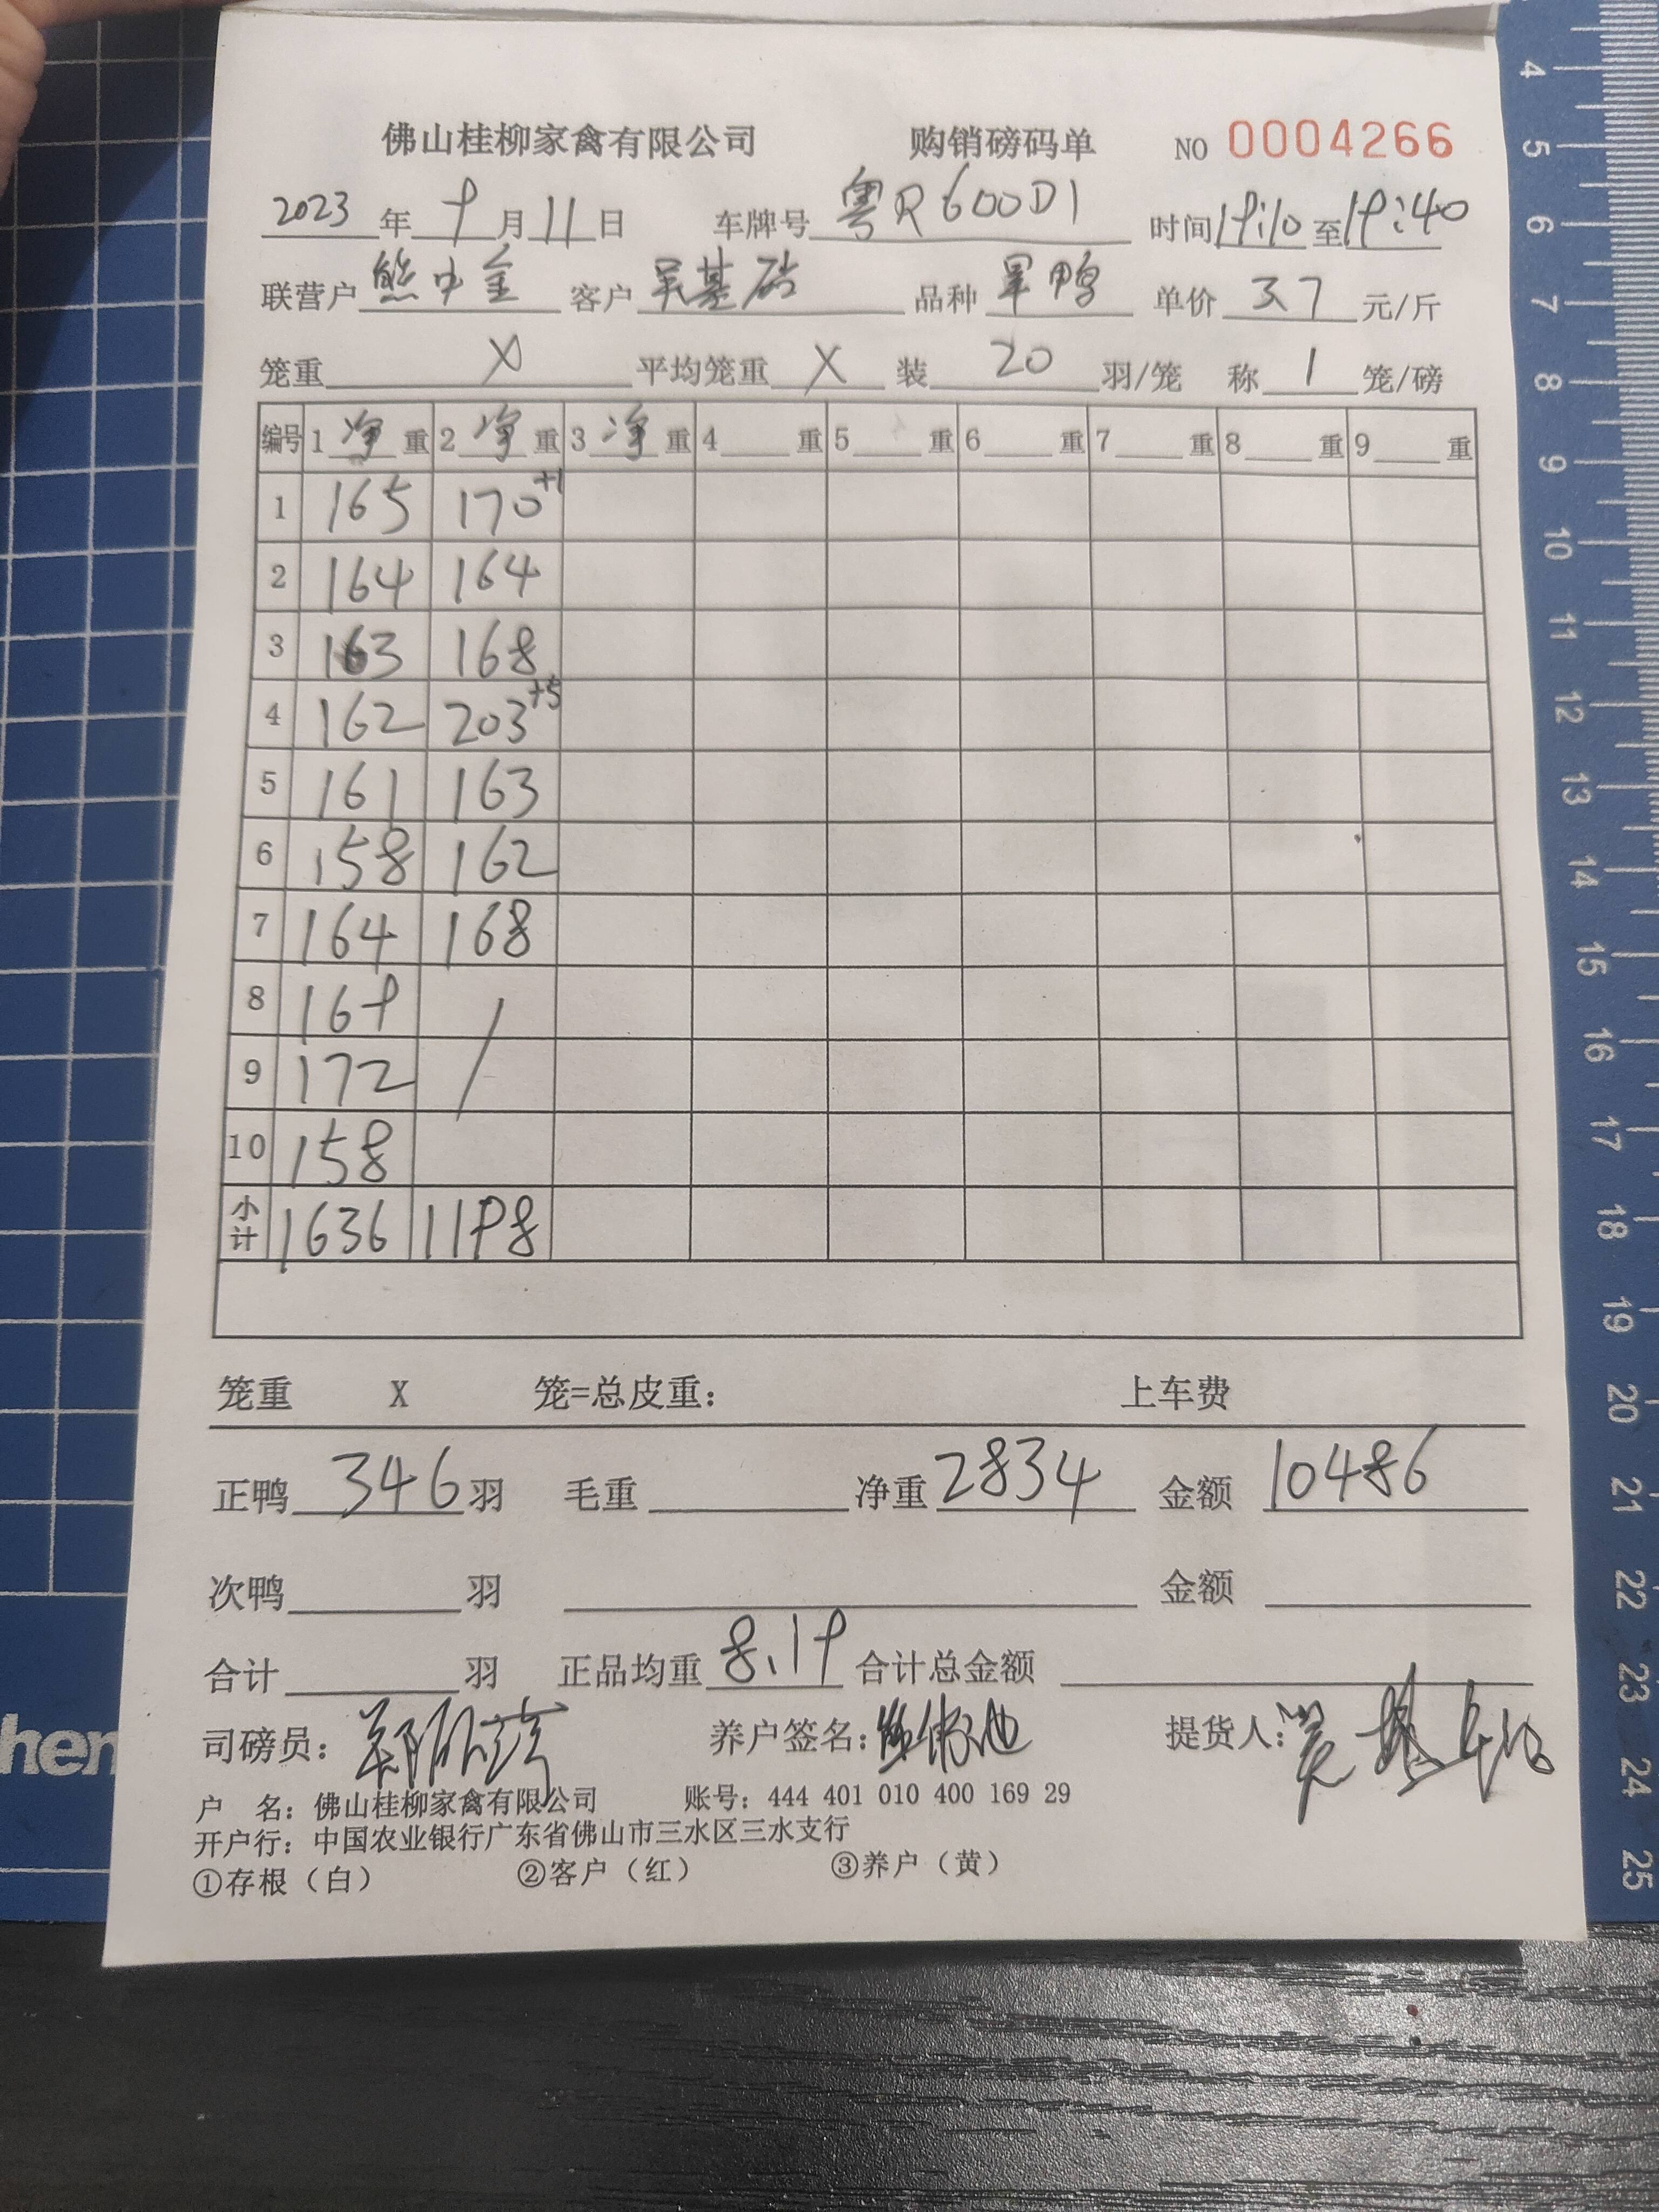 佛山桂柳家禽有限公司 购销磅码单 NO 0004266
2023 年 9 月 11 日 车牌号 粤R600D1 时间 19:10 至 19:40
联营户 熊中金 客户 吴基 品种 旱鸭 单价 3.7 元/斤
笼重 X 平均笼重 X 装 20 羽/笼 称 1 笼/磅
编号 1 净 重 2 净 重 3 净 重 4 重 5 重 6 重 7 重 8 重 9 重
1 165 170+1
2 164 164
3 163 168
4 162 203+5
5 161 163
6 158 162
7 164 168
8 169 /
9 172
10 158
小计 1636 1198
笼重 X 笼=总皮重: 上车费
正鸭 346 羽 毛重 净重 2834 金额 10486
次鸭 羽 金额
合计 羽 正品均重 8.19 合计总金额
司磅员: 养户签名: 提货人:
户 名: 佛山桂柳家禽有限公司 账号: 444 401 010 400 169 29
开户行: 中国农业银行广东省佛山市三水区三水支行
①存根（白） ②客户（红） ③养户（黄）
hen
4
5
6
7
8
9
10
11
12
13
14
15
16
17
18
19
20
21
22
23
24
25